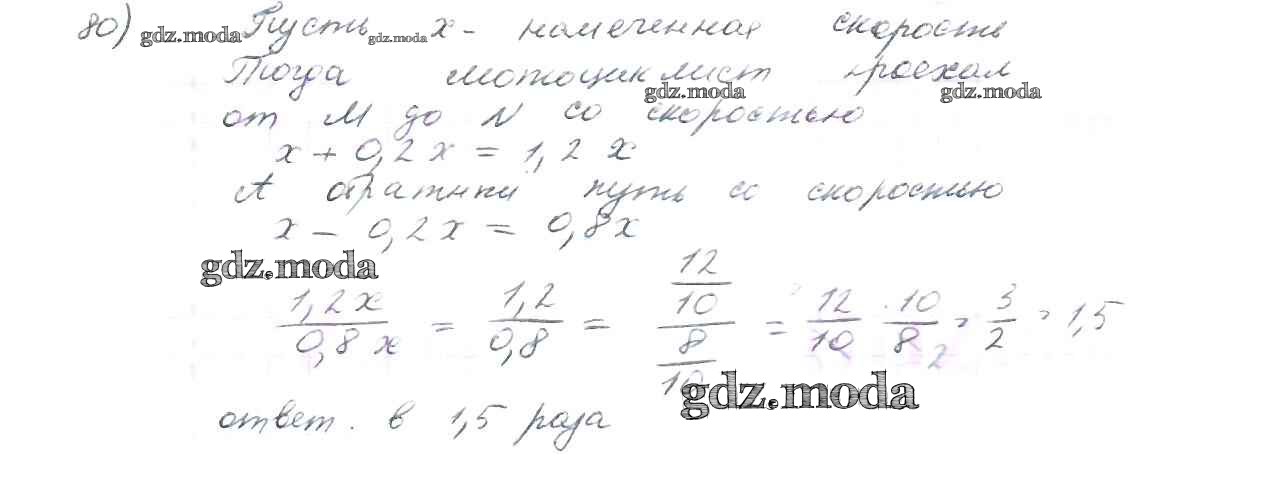 80) gdz.moda Пусть gdz.moda х - намеченная скорость
Тогда мотоциклист проехал
gdz.moda gdz.moda
от M до N со скоростью
x + 0,2x = 1,2 x
А обратный путь со скоростью
x - 0,2x = 0,8x
gdz.moda
1,2x / 0,8x = 1,2 / 0,8 = 12/10 / 8/10 = 12/10 · 10/8 2 = 3/2 = 1,5
gdz.moda
ответ. в 1,5 раза